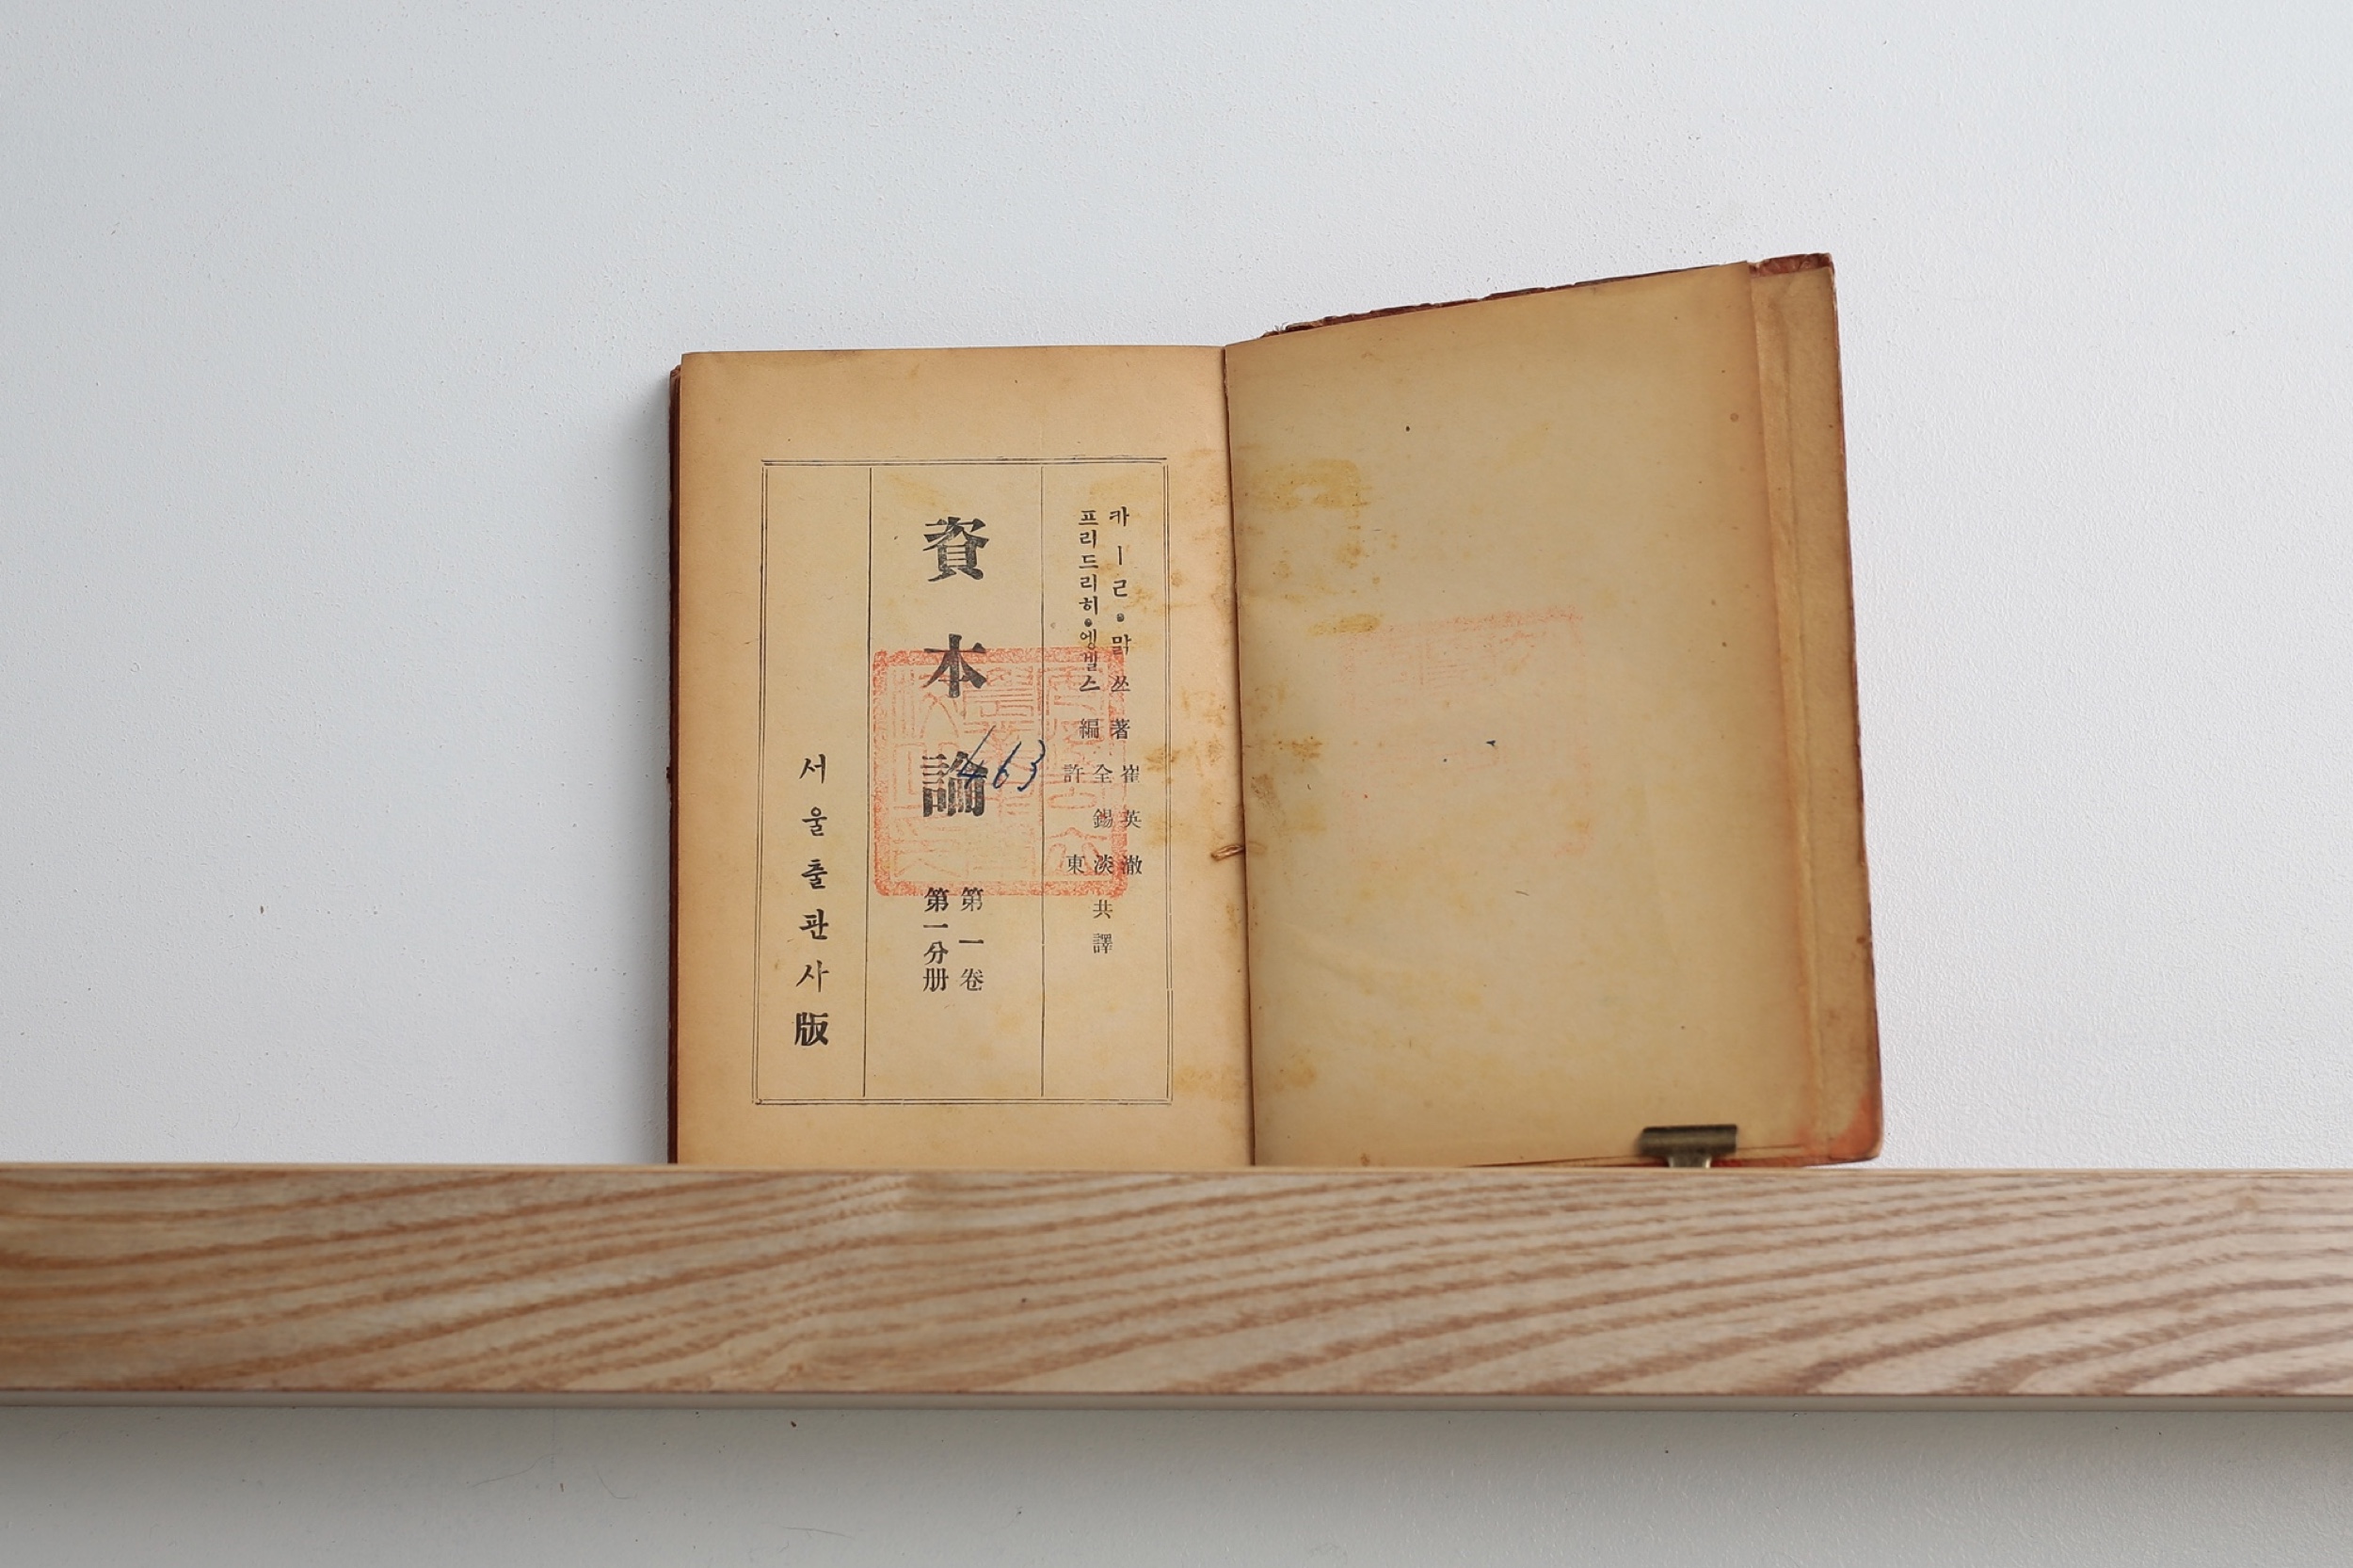 카ㅣㄹ•맑쓰 著
프리드리히•엥겔스 編
崔英澈
全錫淡
許東
共譯
資本論
第一卷
第一分册
463
서울출판사版